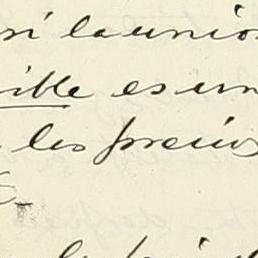 si la union
ible es un
les precis